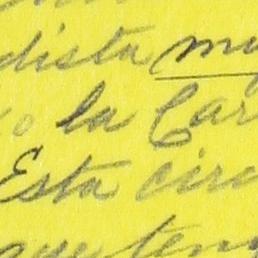 dista mu
o la Car
Esta circ
que ten